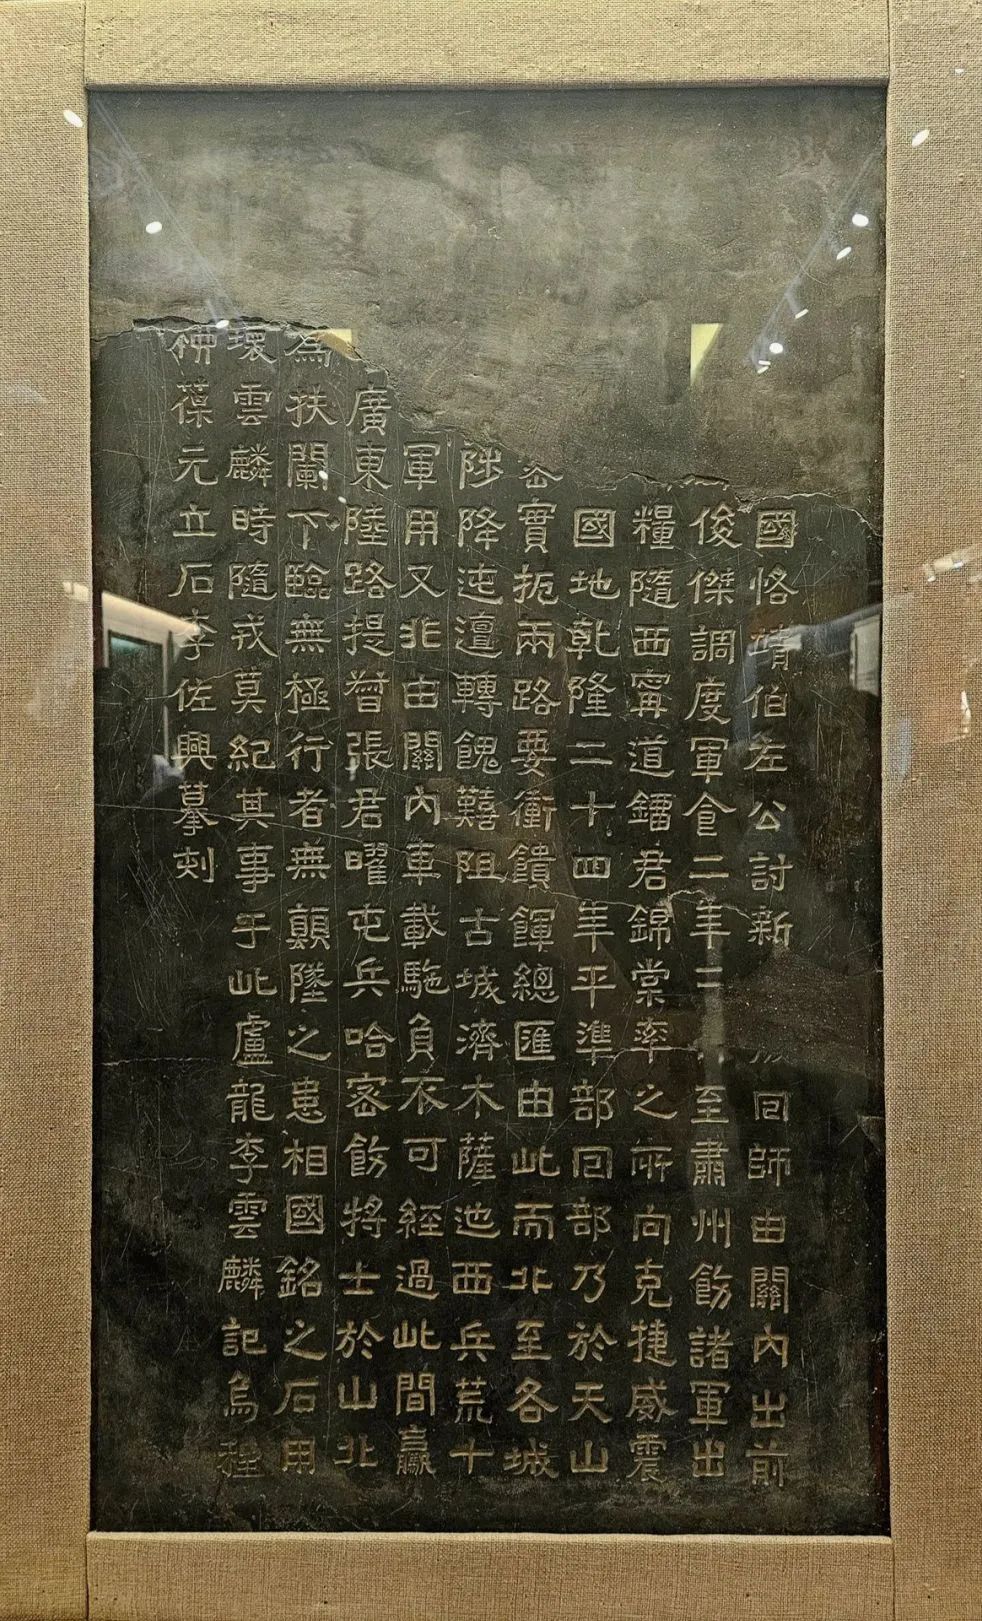 國恪靖伯左公討新 回師由關內出前
俊傑調度軍食二年三 至肅州飭諸軍出
糧隨西寧道鐂君錦棠率之所向克捷威震
國地乾隆二十四年平準部回部乃於天山
密實扼兩路要衝饋餫總匯由此而北至各城
陟降迍邅轉餽艱阻古城濟木薩迤西兵荒十
軍用又非由關內車載駞負不可經過此間贏
廣東陸路提督張君曜屯兵哈密飭將士於山北
為扶闌下臨無極行者無顛墜之患相國銘之石用
環雲麟時隨戎莫紀其事于此盧龍李雲麟記烏程
葆元立石李佐興摹刻